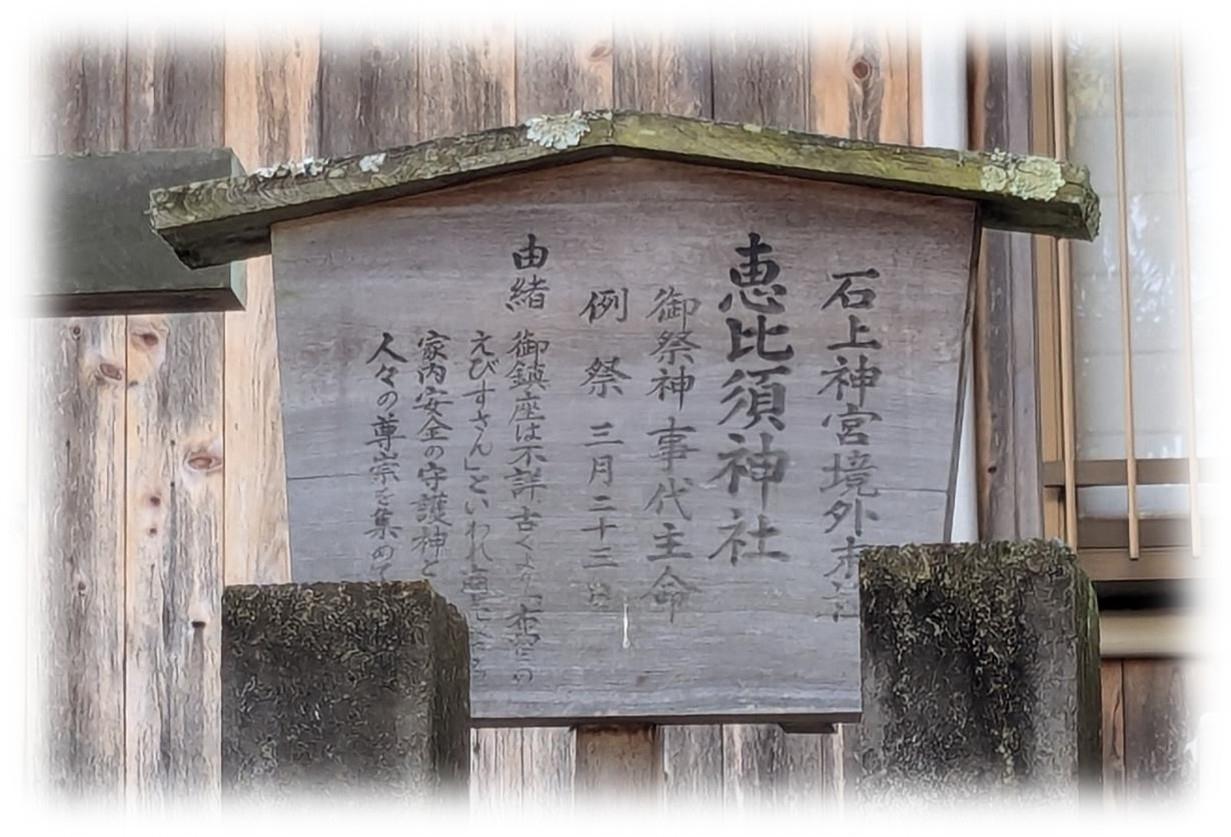 石上神宮境外末社
恵比須神社
御祭神事代主命
例祭 三月二十三
由緒 御鎮座は不詳古くより「布留の
えびすさん」といわれ商
家内安全の守護神と
人々の尊崇を集めて